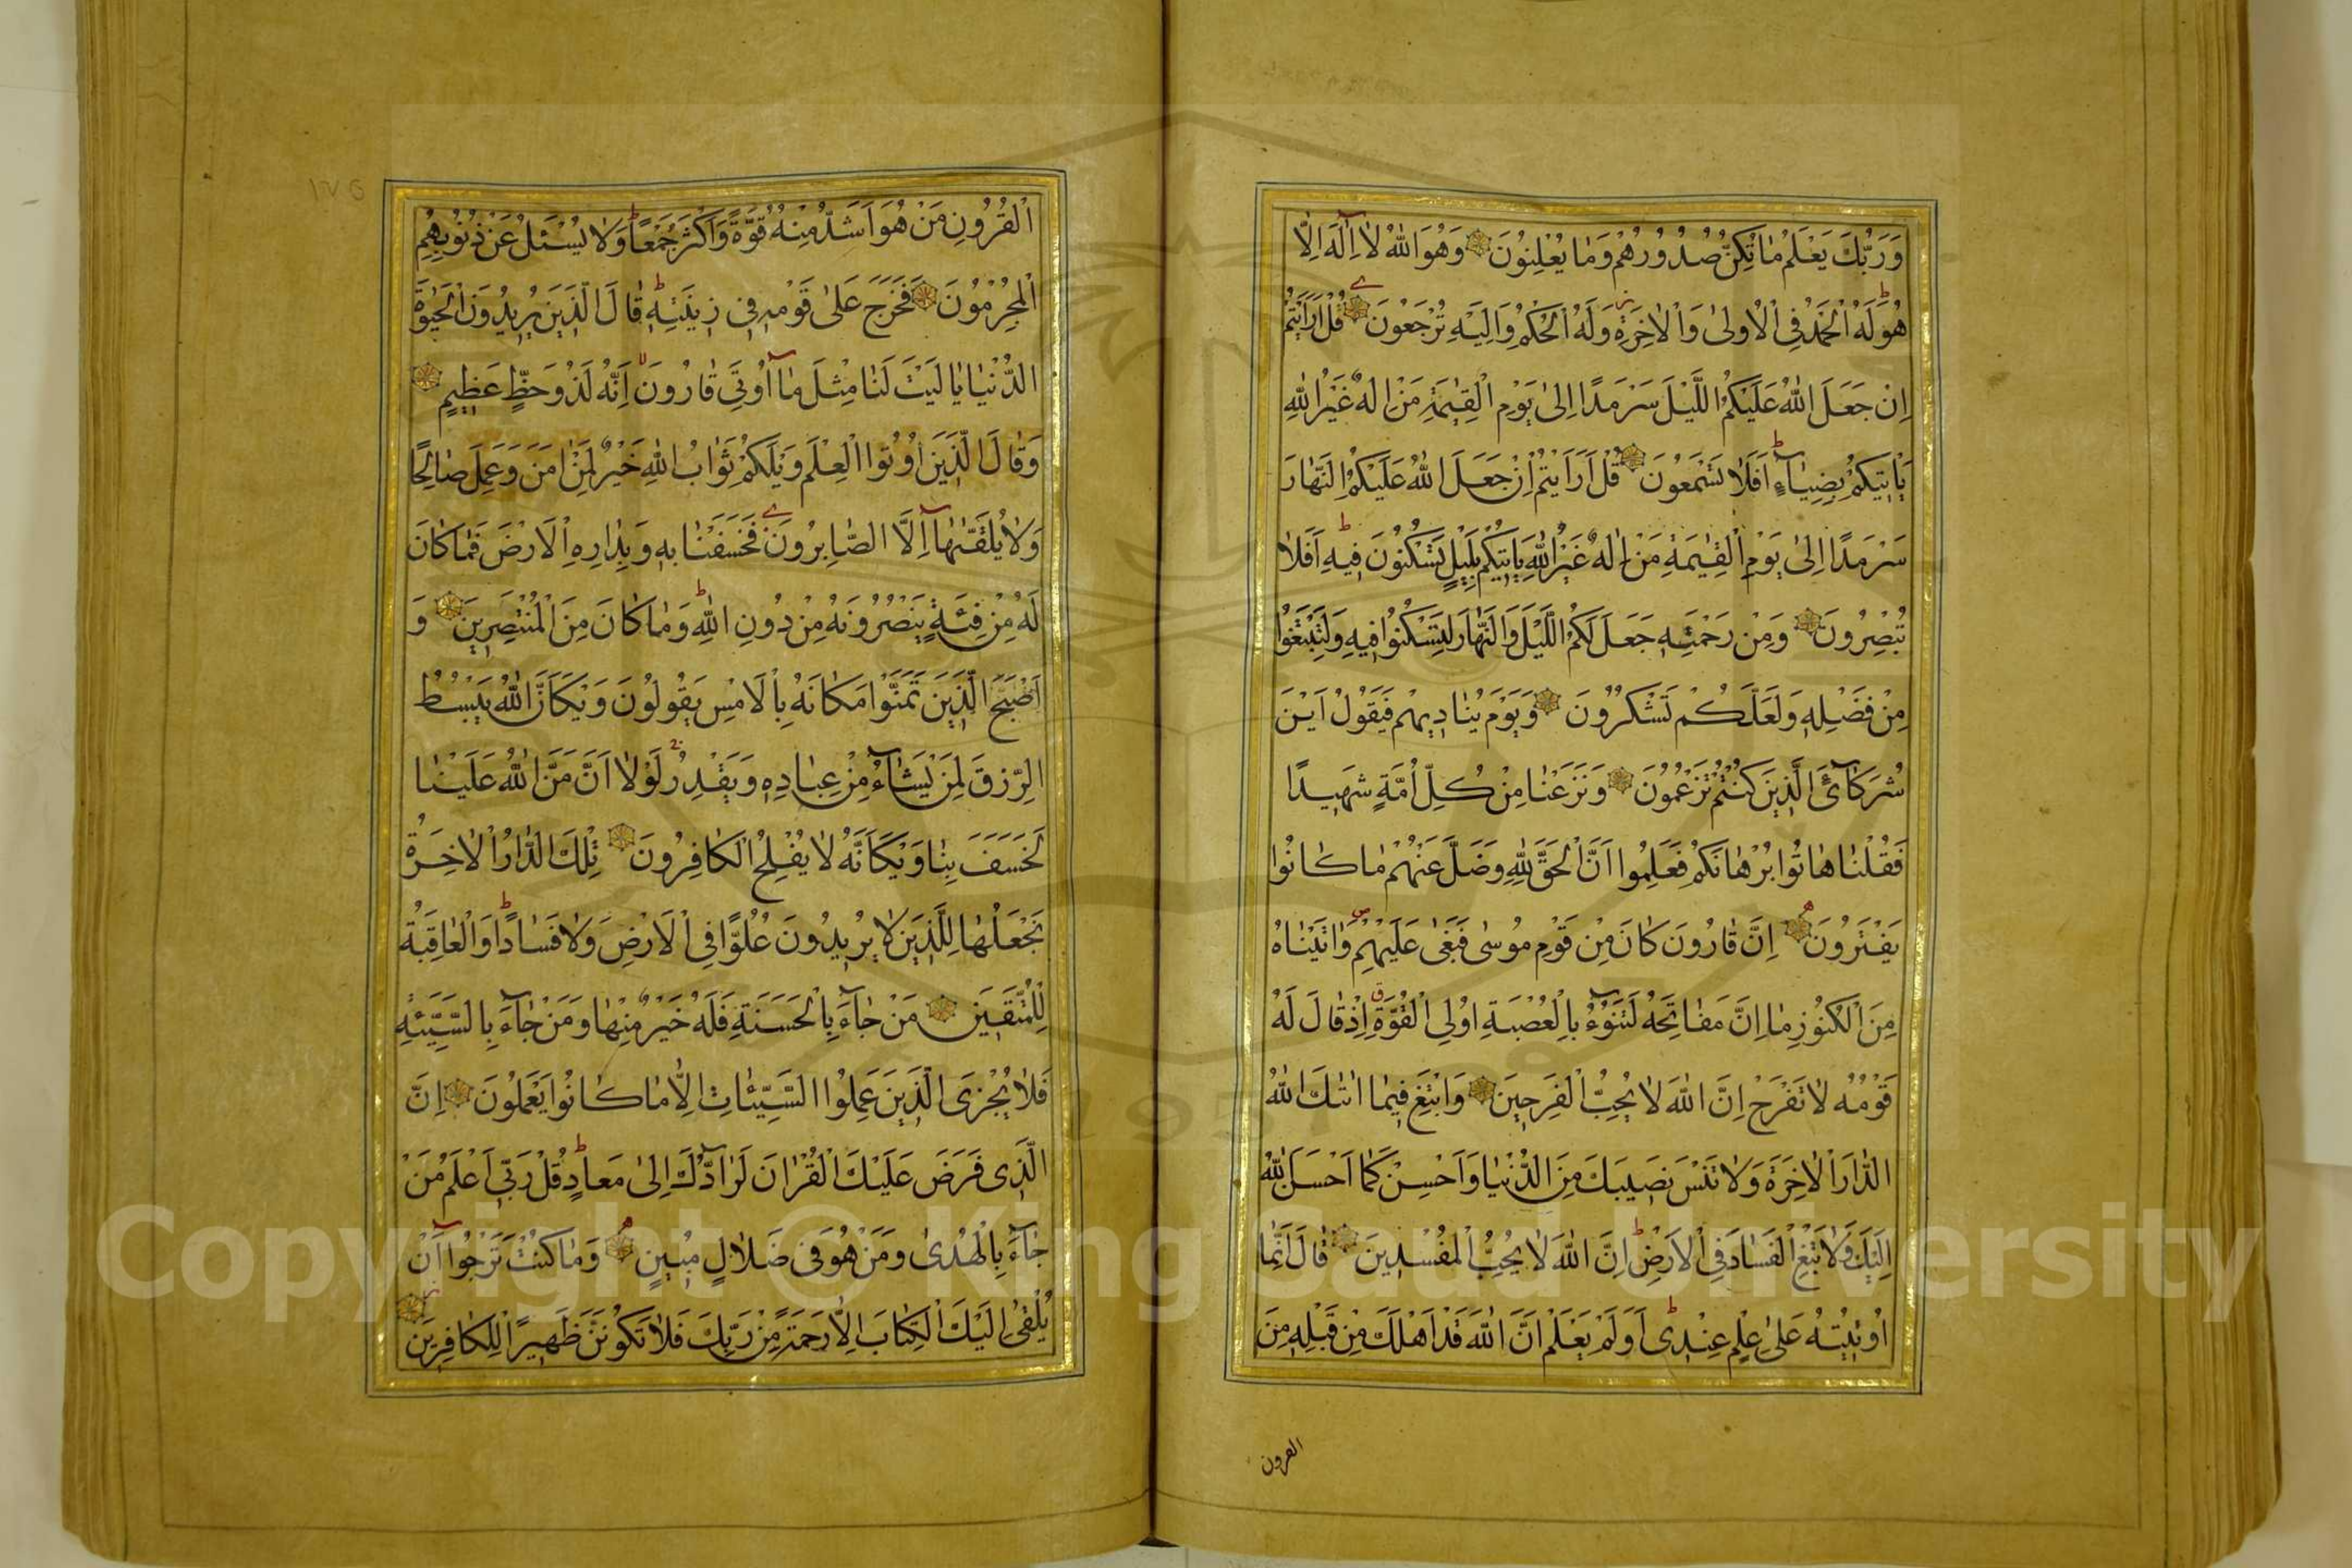 وَرَبُّكَ يَعْلَمُ مَا تُكِنُّ صُدُورُهُمْ وَمَا يُعْلِنُونَ وَهُوَ اللّٰهُ لَا اِلٰهَ اِلَّا
هُوَ لَهُ الْحَمْدُ فِى الْاُولٰى وَالْاٰخِرَةِ وَلَهُ الْحُكْمُ وَاِلَيْهِ تُرْجَعُونَ قُلْ اَرَاَيْتُمْ
اِنْ جَعَلَ اللّٰهُ عَلَيْكُمُ الَّيْلَ سَرْمَدًا اِلٰى يَوْمِ الْقِيٰمَةِ مَنْ اِلٰهٌ غَيْرُ اللّٰهِ
يَأْتِيكُمْ بِضِيَاءٍ اَفَلَا تَسْمَعُونَ قُلْ اَرَاَيْتُمْ اِنْ جَعَلَ اللّٰهُ عَلَيْكُمُ النَّهَارَ
سَرْمَدًا اِلٰى يَوْمِ الْقِيٰمَةِ مَنْ اِلٰهٌ غَيْرُ اللّٰهِ يَأْتِيكُمْ بِلَيْلٍ تَسْكُنُونَ فِيهِ اَفَلَا
تُبْصِرُونَ وَمِنْ رَحْمَتِهٖ جَعَلَ لَكُمُ الَّيْلَ وَالنَّهَارَ لِتَسْكُنُوا فِيهِ وَلِتَبْتَغُوا
مِنْ فَضْلِهٖ وَلَعَلَّكُمْ تَشْكُرُونَ وَيَوْمَ يُنَادِيهِمْ فَيَقُولُ اَيْنَ
شُرَكَآئِىَ الَّذِينَ كُنْتُمْ تَزْعُمُونَ وَنَزَعْنَا مِنْ كُلِّ اُمَّةٍ شَهِيدًا
فَقُلْنَا هَاتُوا بُرْهَانَكُمْ فَعَلِمُوا اَنَّ الْحَقَّ لِلّٰهِ وَضَلَّ عَنْهُمْ مَا كَانُوا
يَفْتَرُونَ اِنَّ قَارُونَ كَانَ مِنْ قَوْمِ مُوسٰى فَبَغٰى عَلَيْهِمْ وَاٰتَيْنَاهُ
مِنَ الْكُنُوزِ مَا اِنَّ مَفَاتِحَهُ لَتَنُوٓءُ بِالْعُصْبَةِ اُولِى الْقُوَّةِ اِذْ قَالَ لَهُ
قَوْمُهُ لَا تَفْرَحْ اِنَّ اللّٰهَ لَا يُحِبُّ الْفَرِحِينَ وَابْتَغِ فِيمَا اٰتٰىكَ اللّٰهُ
الدَّارَ الْاٰخِرَةَ وَلَا تَنْسَ نَصِيبَكَ مِنَ الدُّنْيَا وَاَحْسِنْ كَمَا اَحْسَنَ اللّٰهُ
اِلَيْكَ وَلَا تَبْغِ الْفَسَادَ فِى الْاَرْضِ اِنَّ اللّٰهَ لَا يُحِبُّ الْمُفْسِدِينَ قَالَ اِنَّمَا
اُوتِيتُهُ عَلٰى عِلْمٍ عِنْدِى اَوَلَمْ يَعْلَمْ اَنَّ اللّٰهَ قَدْ اَهْلَكَ مِنْ قَبْلِهٖ مِنَ
القرون
١٧٥
الْقُرُونِ مَنْ هُوَ اَشَدُّ مِنْهُ قُوَّةً وَاَكْثَرُ جَمْعًا وَلَا يُسْئَلُ عَنْ ذُنُوبِهِمُ
الْمُجْرِمُونَ فَخَرَجَ عَلٰى قَوْمِهٖ فِى زِينَتِهٖ قَالَ الَّذِينَ يُرِيدُونَ الْحَيٰوةَ
الدُّنْيَا يَا لَيْتَ لَنَا مِثْلَ مَآ اُوتِىَ قَارُونُ اِنَّهُ لَذُو حَظٍّ عَظِيمٍ
وَقَالَ الَّذِينَ اُوتُوا الْعِلْمَ وَيْلَكُمْ ثَوَابُ اللّٰهِ خَيْرٌ لِمَنْ اٰمَنَ وَعَمِلَ صَالِحًا
وَلَا يُلَقّٰيهَآ اِلَّا الصَّابِرُونَ فَخَسَفْنَا بِهٖ وَبِدَارِهِ الْاَرْضَ فَمَا كَانَ
لَهُ مِنْ فِئَةٍ يَنْصُرُونَهُ مِنْ دُونِ اللّٰهِ وَمَا كَانَ مِنَ الْمُنْتَصِرِينَ وَ
اَصْبَحَ الَّذِينَ تَمَنَّوْا مَكَانَهُ بِالْاَمْسِ يَقُولُونَ وَيْكَاَنَّ اللّٰهَ يَبْسُطُ
الرِّزْقَ لِمَنْ يَشَآءُ مِنْ عِبَادِهٖ وَيَقْدِرُ لَوْلَا اَنْ مَنَّ اللّٰهُ عَلَيْنَا
لَخَسَفَ بِنَا وَيْكَاَنَّهُ لَا يُفْلِحُ الْكَافِرُونَ تِلْكَ الدَّارُ الْاٰخِرَةُ
نَجْعَلُهَا لِلَّذِينَ لَا يُرِيدُونَ عُلُوًّا فِى الْاَرْضِ وَلَا فَسَادًا وَالْعَاقِبَةُ
لِلْمُتَّقِينَ مَنْ جَآءَ بِالْحَسَنَةِ فَلَهُ خَيْرٌ مِنْهَا وَمَنْ جَآءَ بِالسَّيِّئَةِ
فَلَا يُجْزَى الَّذِينَ عَمِلُوا السَّيِّئَاتِ اِلَّا مَا كَانُوا يَعْمَلُونَ اِنَّ
الَّذِى فَرَضَ عَلَيْكَ الْقُرْاٰنَ لَرَآدُّكَ اِلٰى مَعَادٍ قُلْ رَبِّى اَعْلَمُ مَنْ
جَآءَ بِالْهُدٰى وَمَنْ هُوَ فِى ضَلَالٍ مُبِينٍ وَمَا كُنْتَ تَرْجُوآ اَنْ
يُلْقٰى اِلَيْكَ الْكِتَابُ اِلَّا رَحْمَةً مِنْ رَبِّكَ فَلَا تَكُونَنَّ ظَهِيرًا لِلْكَافِرِينَ
Copyright © King Saud University
1957